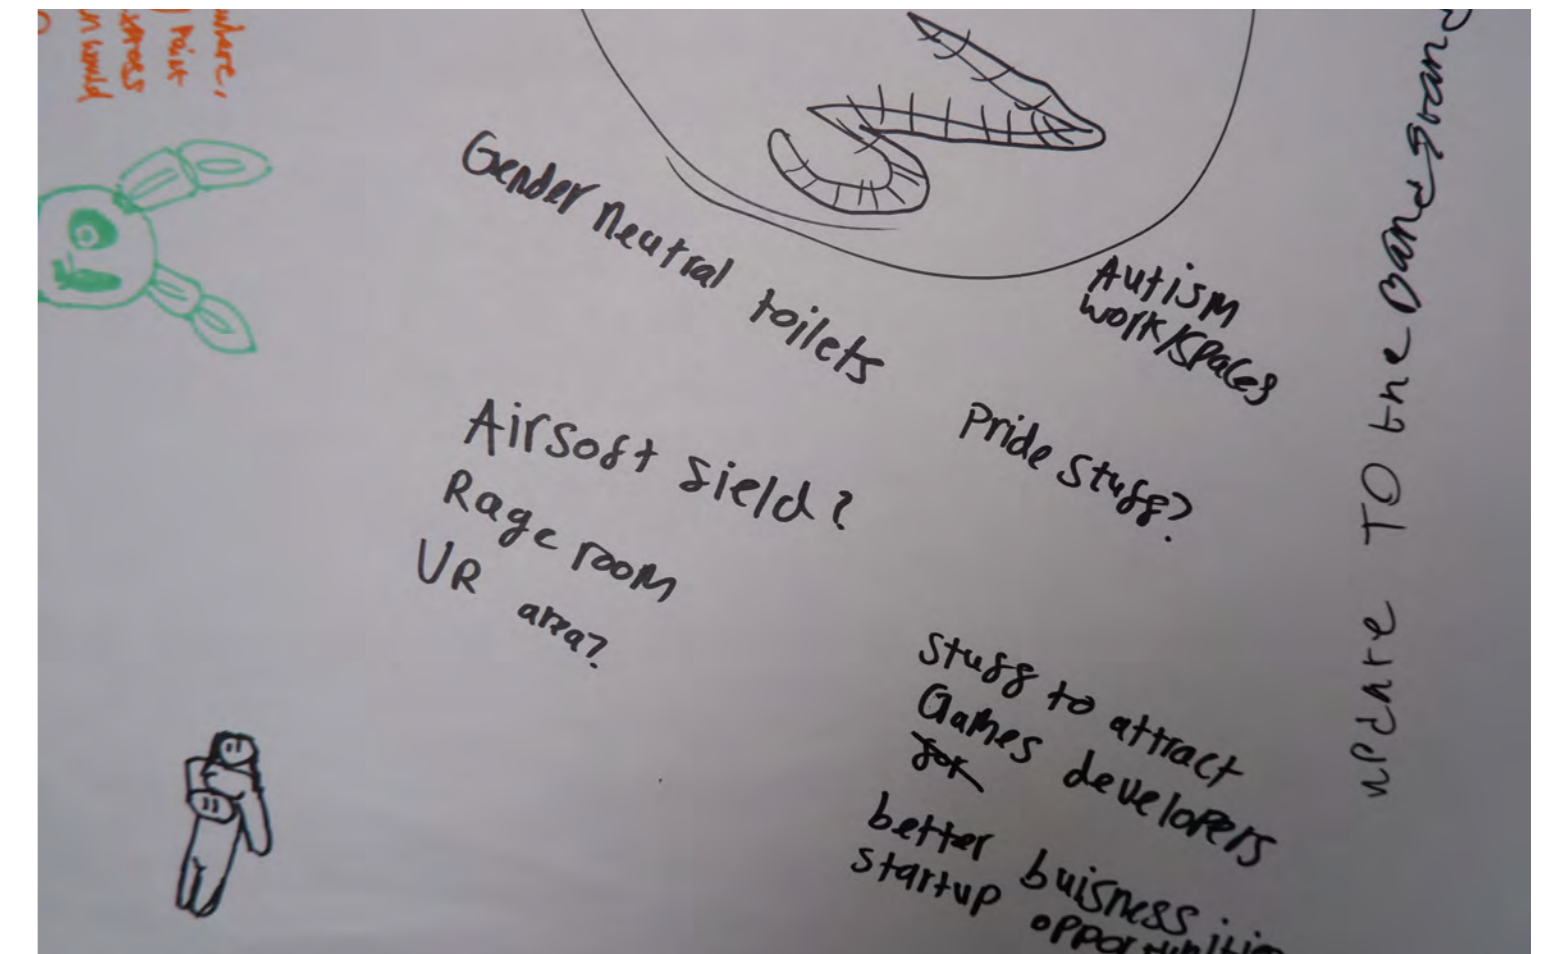 where,
Paint
would
Gender neutral toilets
Autism
work/spaces
Pride stuff?
Airsoft field?
Rage room
VR area?
Stuff to attract
Games developers
for
better buisness
startup opportunities
update To the Bandstand